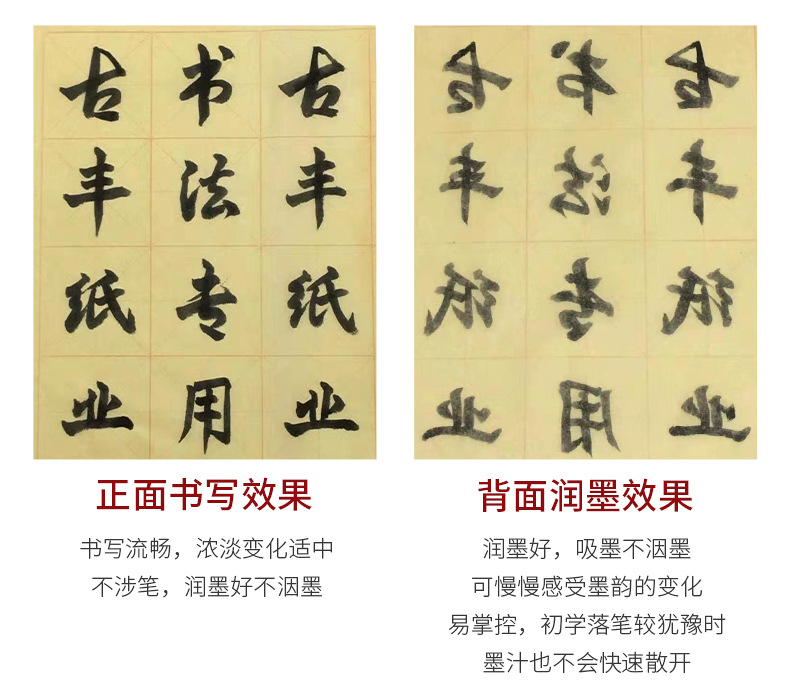 古书古
丰法丰
纸专纸
业用业
古书古
丰法丰
纸专纸
业用业
正面书写效果
书写流畅，浓淡变化适中
不涉笔，润墨好不洇墨
背面润墨效果
润墨好，吸墨不洇墨
可慢慢感受墨韵的变化
易掌控，初学落笔较犹豫时
墨汁也不会快速散开